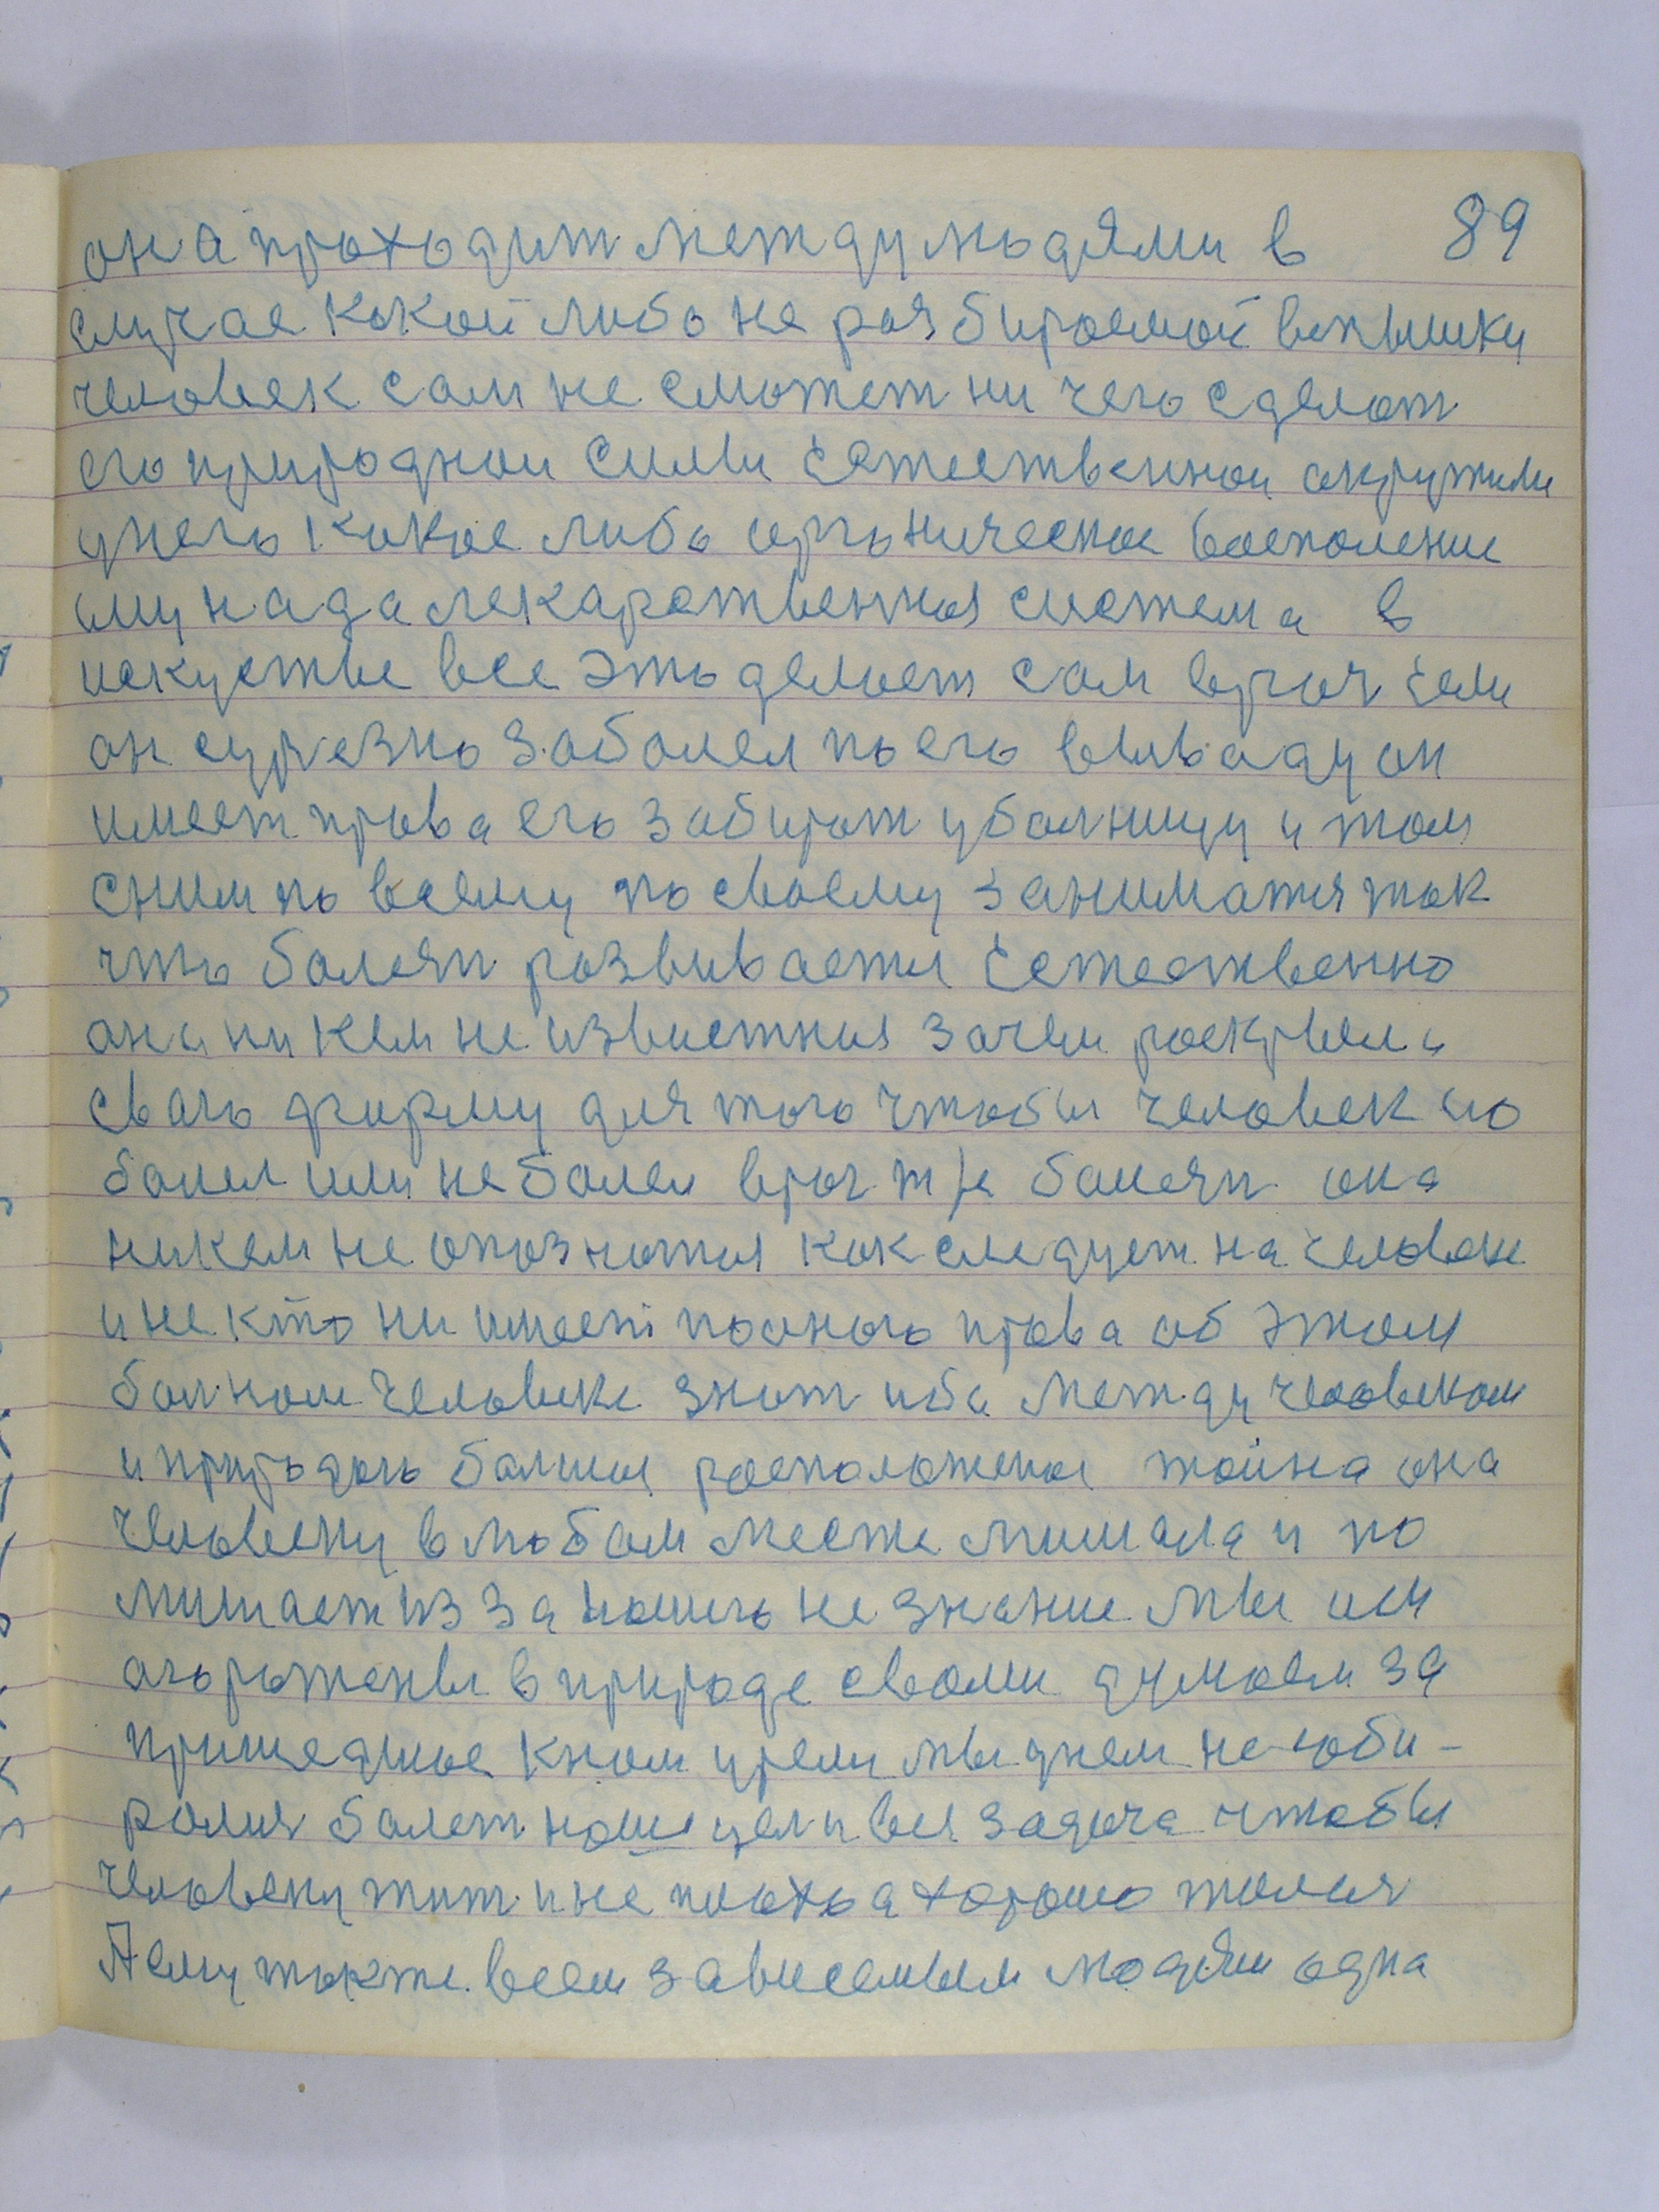 она проходит между людями в 89
случае какой либо не разбираемой вспышки
человек сам не сможет ни чего сделат
его природнои силы естественнои окружили
унего какое либо органическое воспаление
ему нада лекарственная система в
искустве все это делает сам врач если
он сурезно заболел по его выводу он
имеет права его забират уболницу и там
сним по всему по своему заниматя так
что болезн развивается естественно
она ни кем не известная зачем раскрыла
сваю форму для того чтобы человек
болел или не болел врач т/е болезн она
никем не опознатая как следует на человеке
и не кто ни имеет полного права об этом
болном человеке знат иба между человеком
и природою болшая расположеная тайна она
человеку в любом месте мишала и по
мишает из за нашего не знание мы
огорожены в природе своми думаем за
пришедшое кнам время мы унем не соби-
ралия болет наша цел и вся задача чтобы
человеку жит и не плохо а хорошо
Аему также всем зависемым людям одна